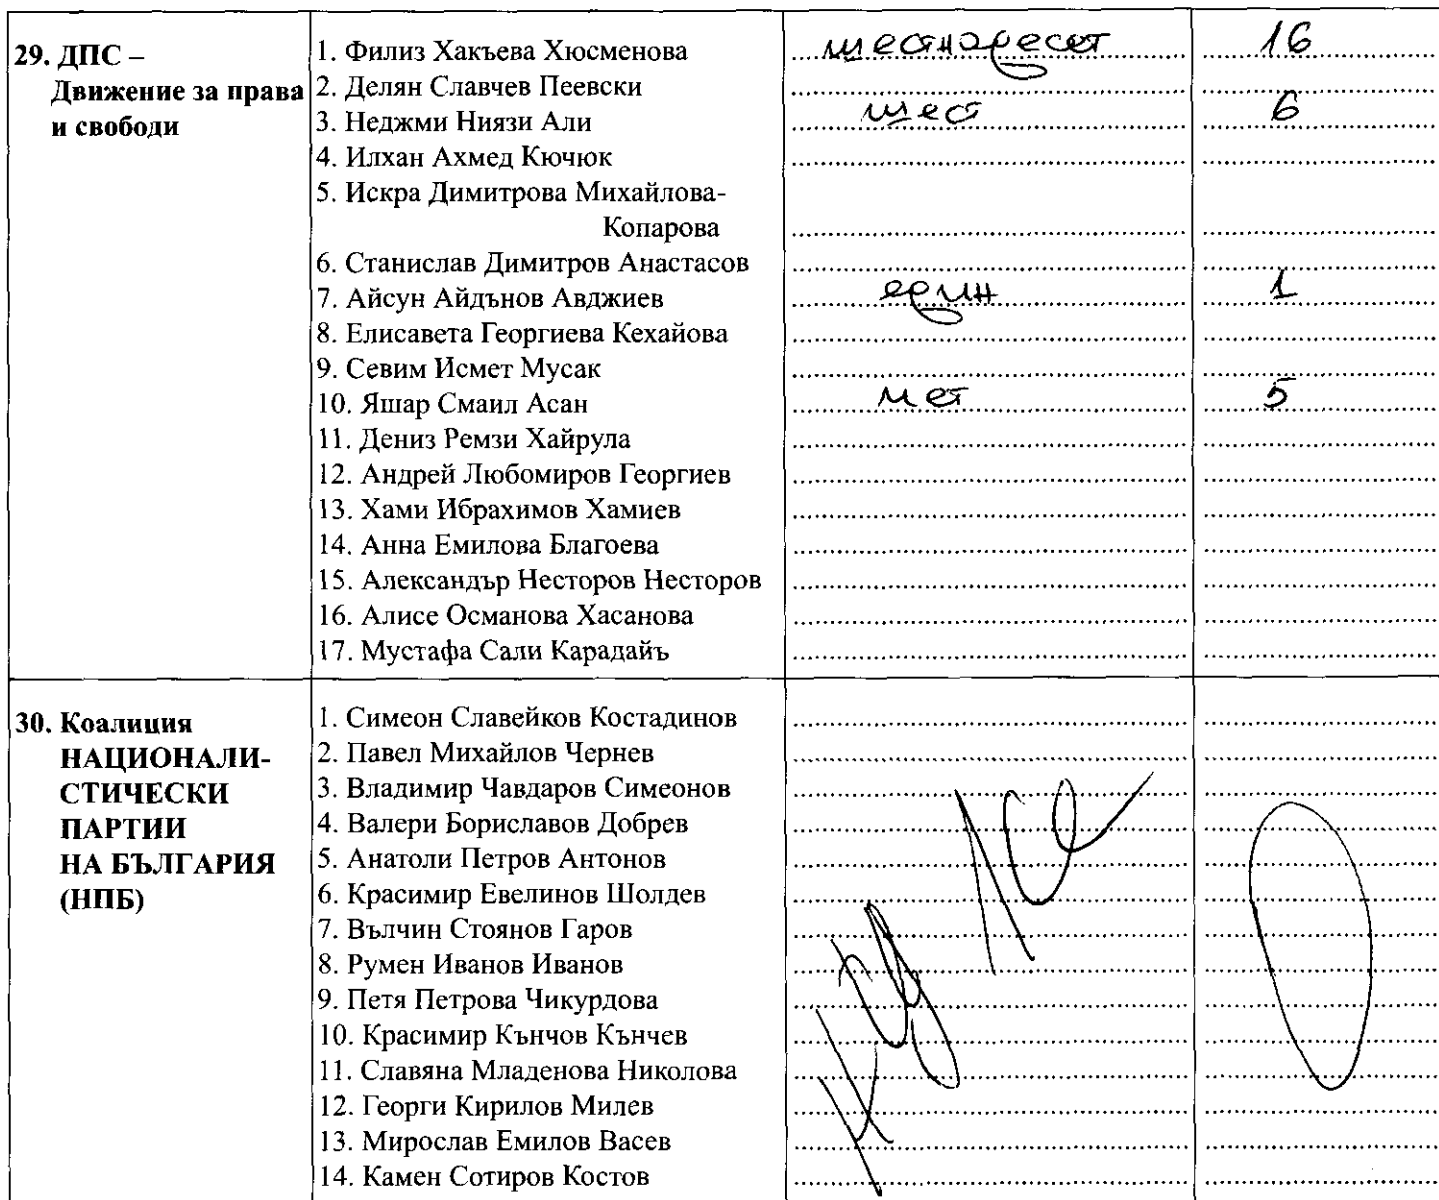 29. ДПС –
Движение за права
и свободи
1. Филиз Хакъева Хюсменова шестнадесет 16
2. Делян Славчев Пеевски
3. Неджми Ниязи Али шест 6
4. Илхан Ахмед Кючюк
5. Искра Димитрова Михайлова-
Копарова
6. Станислав Димитров Анастасов
7. Айсун Айдънов Авджиев един 1
8. Елисавета Георгиева Кехайова
9. Севим Исмет Мусак
10. Яшар Смаил Асан пет 5
11. Дениз Ремзи Хайрула
12. Андрей Любомиров Георгиев
13. Хами Ибрахимов Хамиев
14. Анна Емилова Благоева
15. Александър Несторов Несторов
16. Алисе Османова Хасанова
17. Мустафа Сали Карадайъ
30. Коалиция
НАЦИОНАЛИ-
СТИЧЕСКИ
ПАРТИИ
НА БЪЛГАРИЯ
(НПБ)
1. Симеон Славейков Костадинов
2. Павел Михайлов Чернев
3. Владимир Чавдаров Симеонов
4. Валери Бориславов Добрев
5. Анатоли Петров Антонов
6. Красимир Евелинов Шолдев
7. Вълчин Стоянов Гаров
8. Румен Иванов Иванов
9. Петя Петрова Чикурдова
10. Красимир Кънчов Кънчев
11. Славяна Младенова Николова
12. Георги Кирилов Милев
13. Мирослав Емилов Васев
14. Камен Сотиров Костов
0